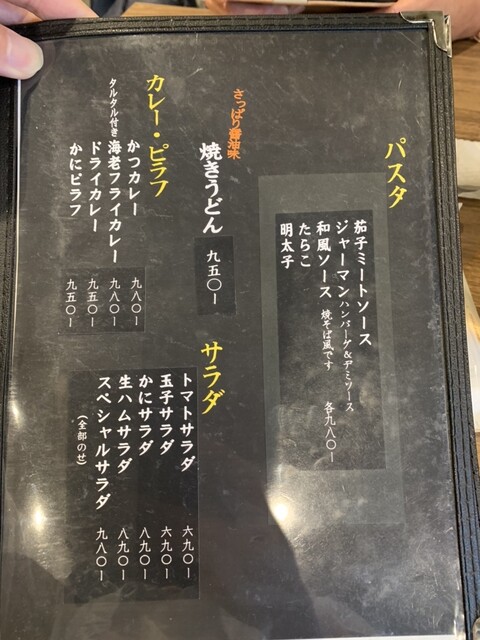 パスタ
茄子ミートソース
ジャーマンハンバーグ&デミソース
和風ソース 焼そば風です
たらこ
明太子
各九八〇ー
さっぱり醤油味
焼きうどん 九五〇ー
カレー・ピラフ
かつカレー 九八〇ー
タルタル付き
海老フライカレー 九八〇ー
ドライカレー 九五〇ー
かにピラフ 九五〇ー
サラダ
トマトサラダ 六九〇ー
玉子サラダ 六九〇ー
かにサラダ 八九〇ー
生ハムサラダ 八九〇ー
スペシャルサラダ 九八〇ー
(全部のせ)